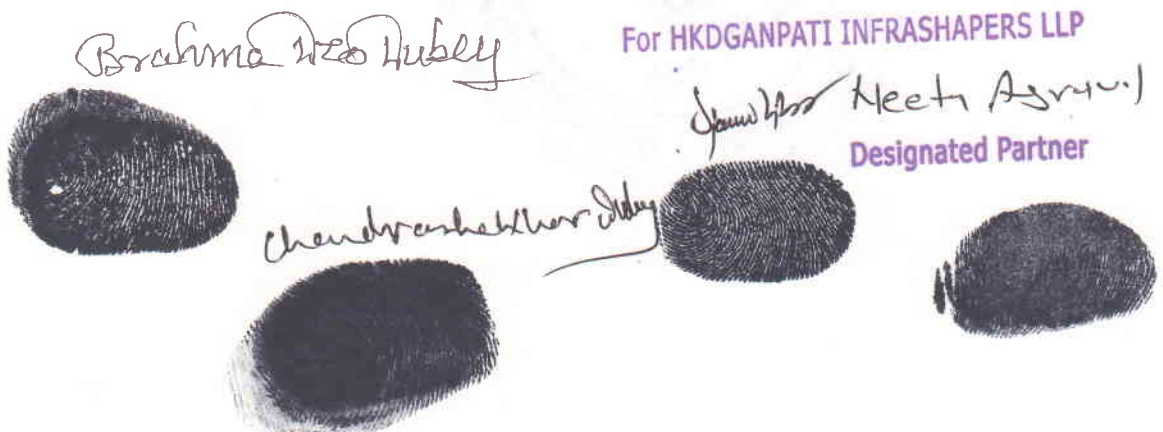 Brahma Deo Dubey
For HKDGANPATI INFRASHAPERS LLP
Neeta Agrawal
Designated Partner
Chandrashekhar Dubey